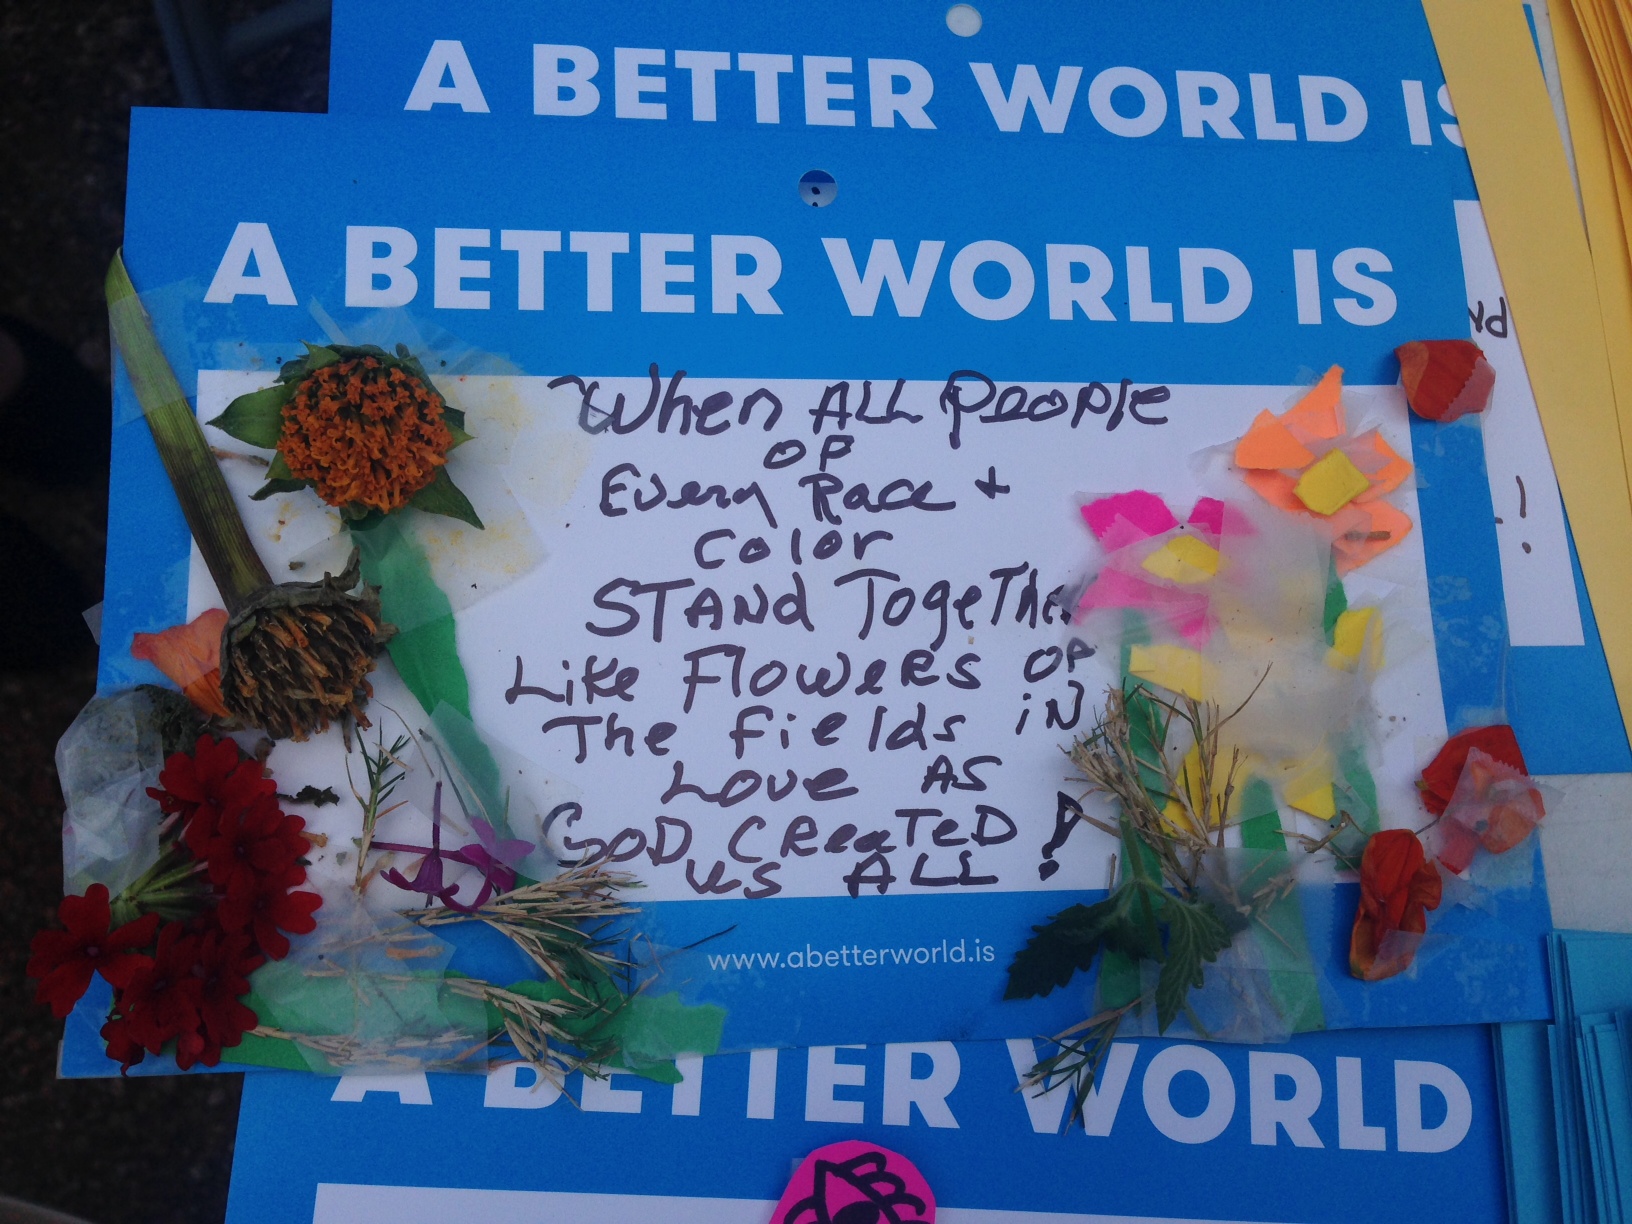 A BETTER WORLD IS
A BETTER WORLD IS
When ALL People
OF
Every Race +
Color
STANd TogeTher
Like Flowers OF
The Fields iN
Love AS
GOD CReaTeD !
us ALL
www.abetterworld.is
A BETTER WORLD